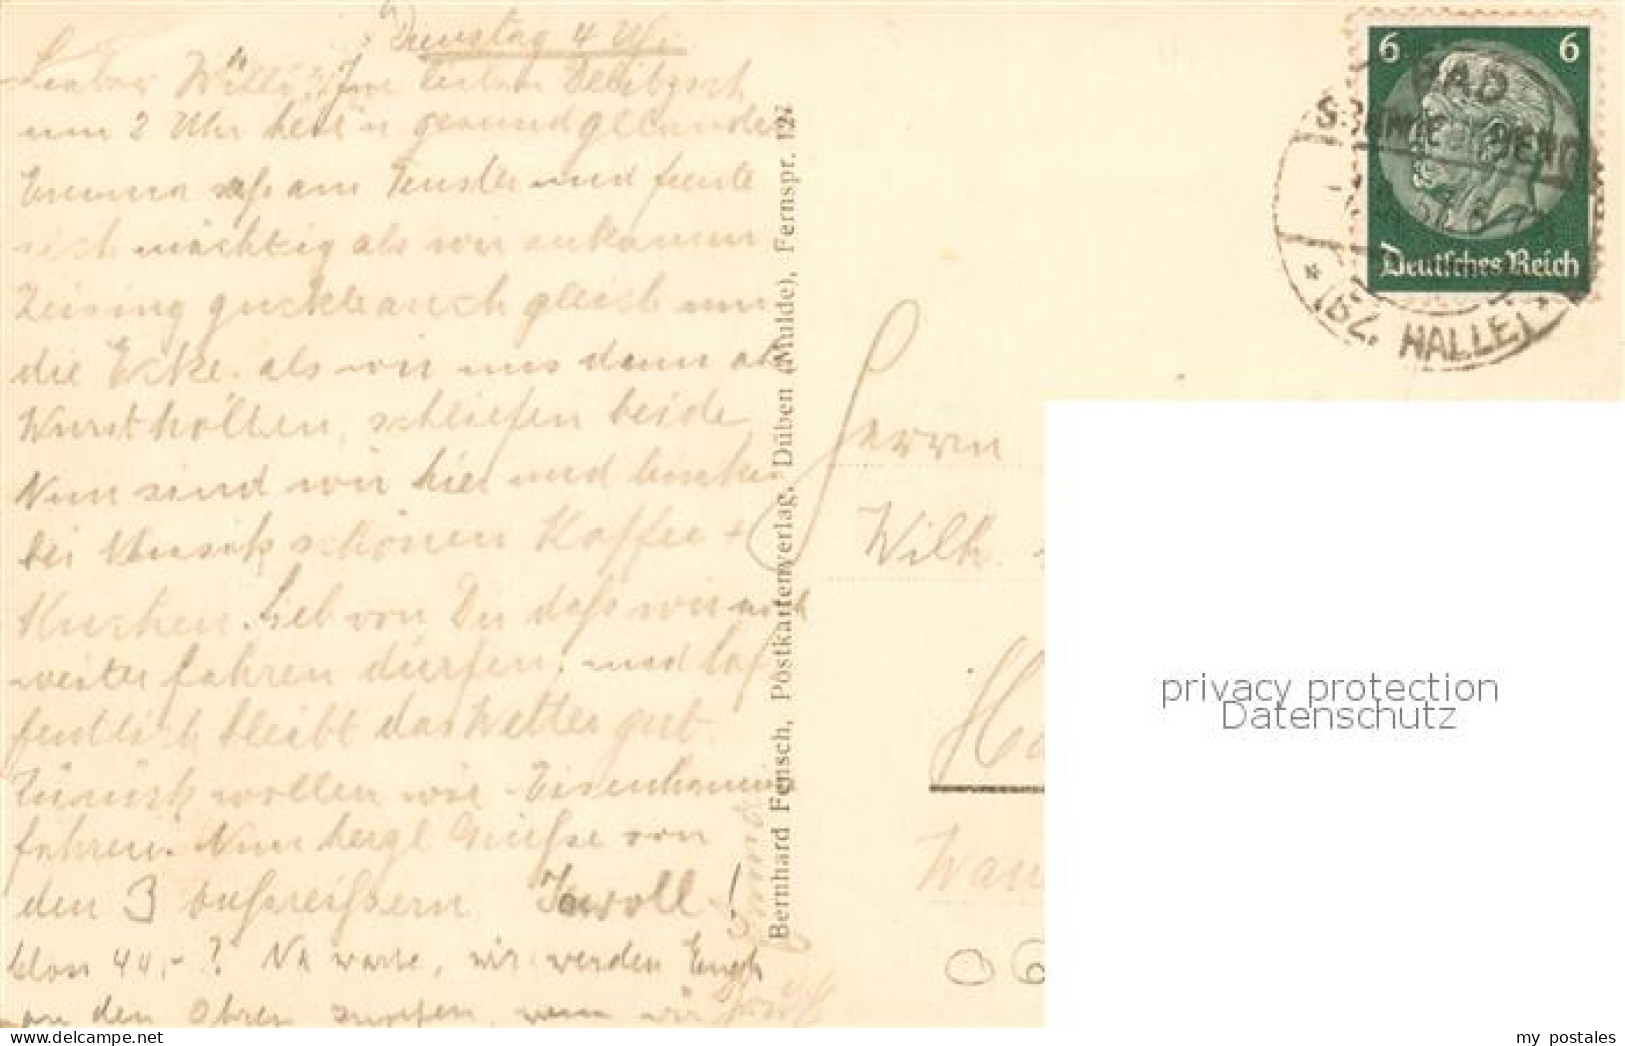 Dienstag 4 Uhr
Lieber Willi! In Delitzsch
um 2 Uhr heil u gesund gelandet
Emma saß am Fenster und freute
sich mächtig als wir ankamen
Zeising guckte auch gleich um
die Ecke. als wir uns dann ab
Wurst holten, schliefen beide
Nun sind wir hier und trinken
bei Musik schönen Kaffee +
Kuchen. Lieb von Dir daß wir noch
weiter fahren dürfen, und hof
fentlich bleibt das Wetter gut.
Zurück wollen wir Eisenhammer
fahren. Nun herzl Grüße von
den 3 Ausreißern Jawoll!
bloss 44,-? Na warte, wir werden Euch
an den Ohren zupfen, wenn wir
Bernhard Fensch, Postkartenverlag, Düben (Mulde), Fernspr. 127
6 6
Deutsches Reich
BAD
SCHMIEDEBERG
* (BZ. HALLE) *
Herrn
Wilh.
privacy protection
Datenschutz
my postales